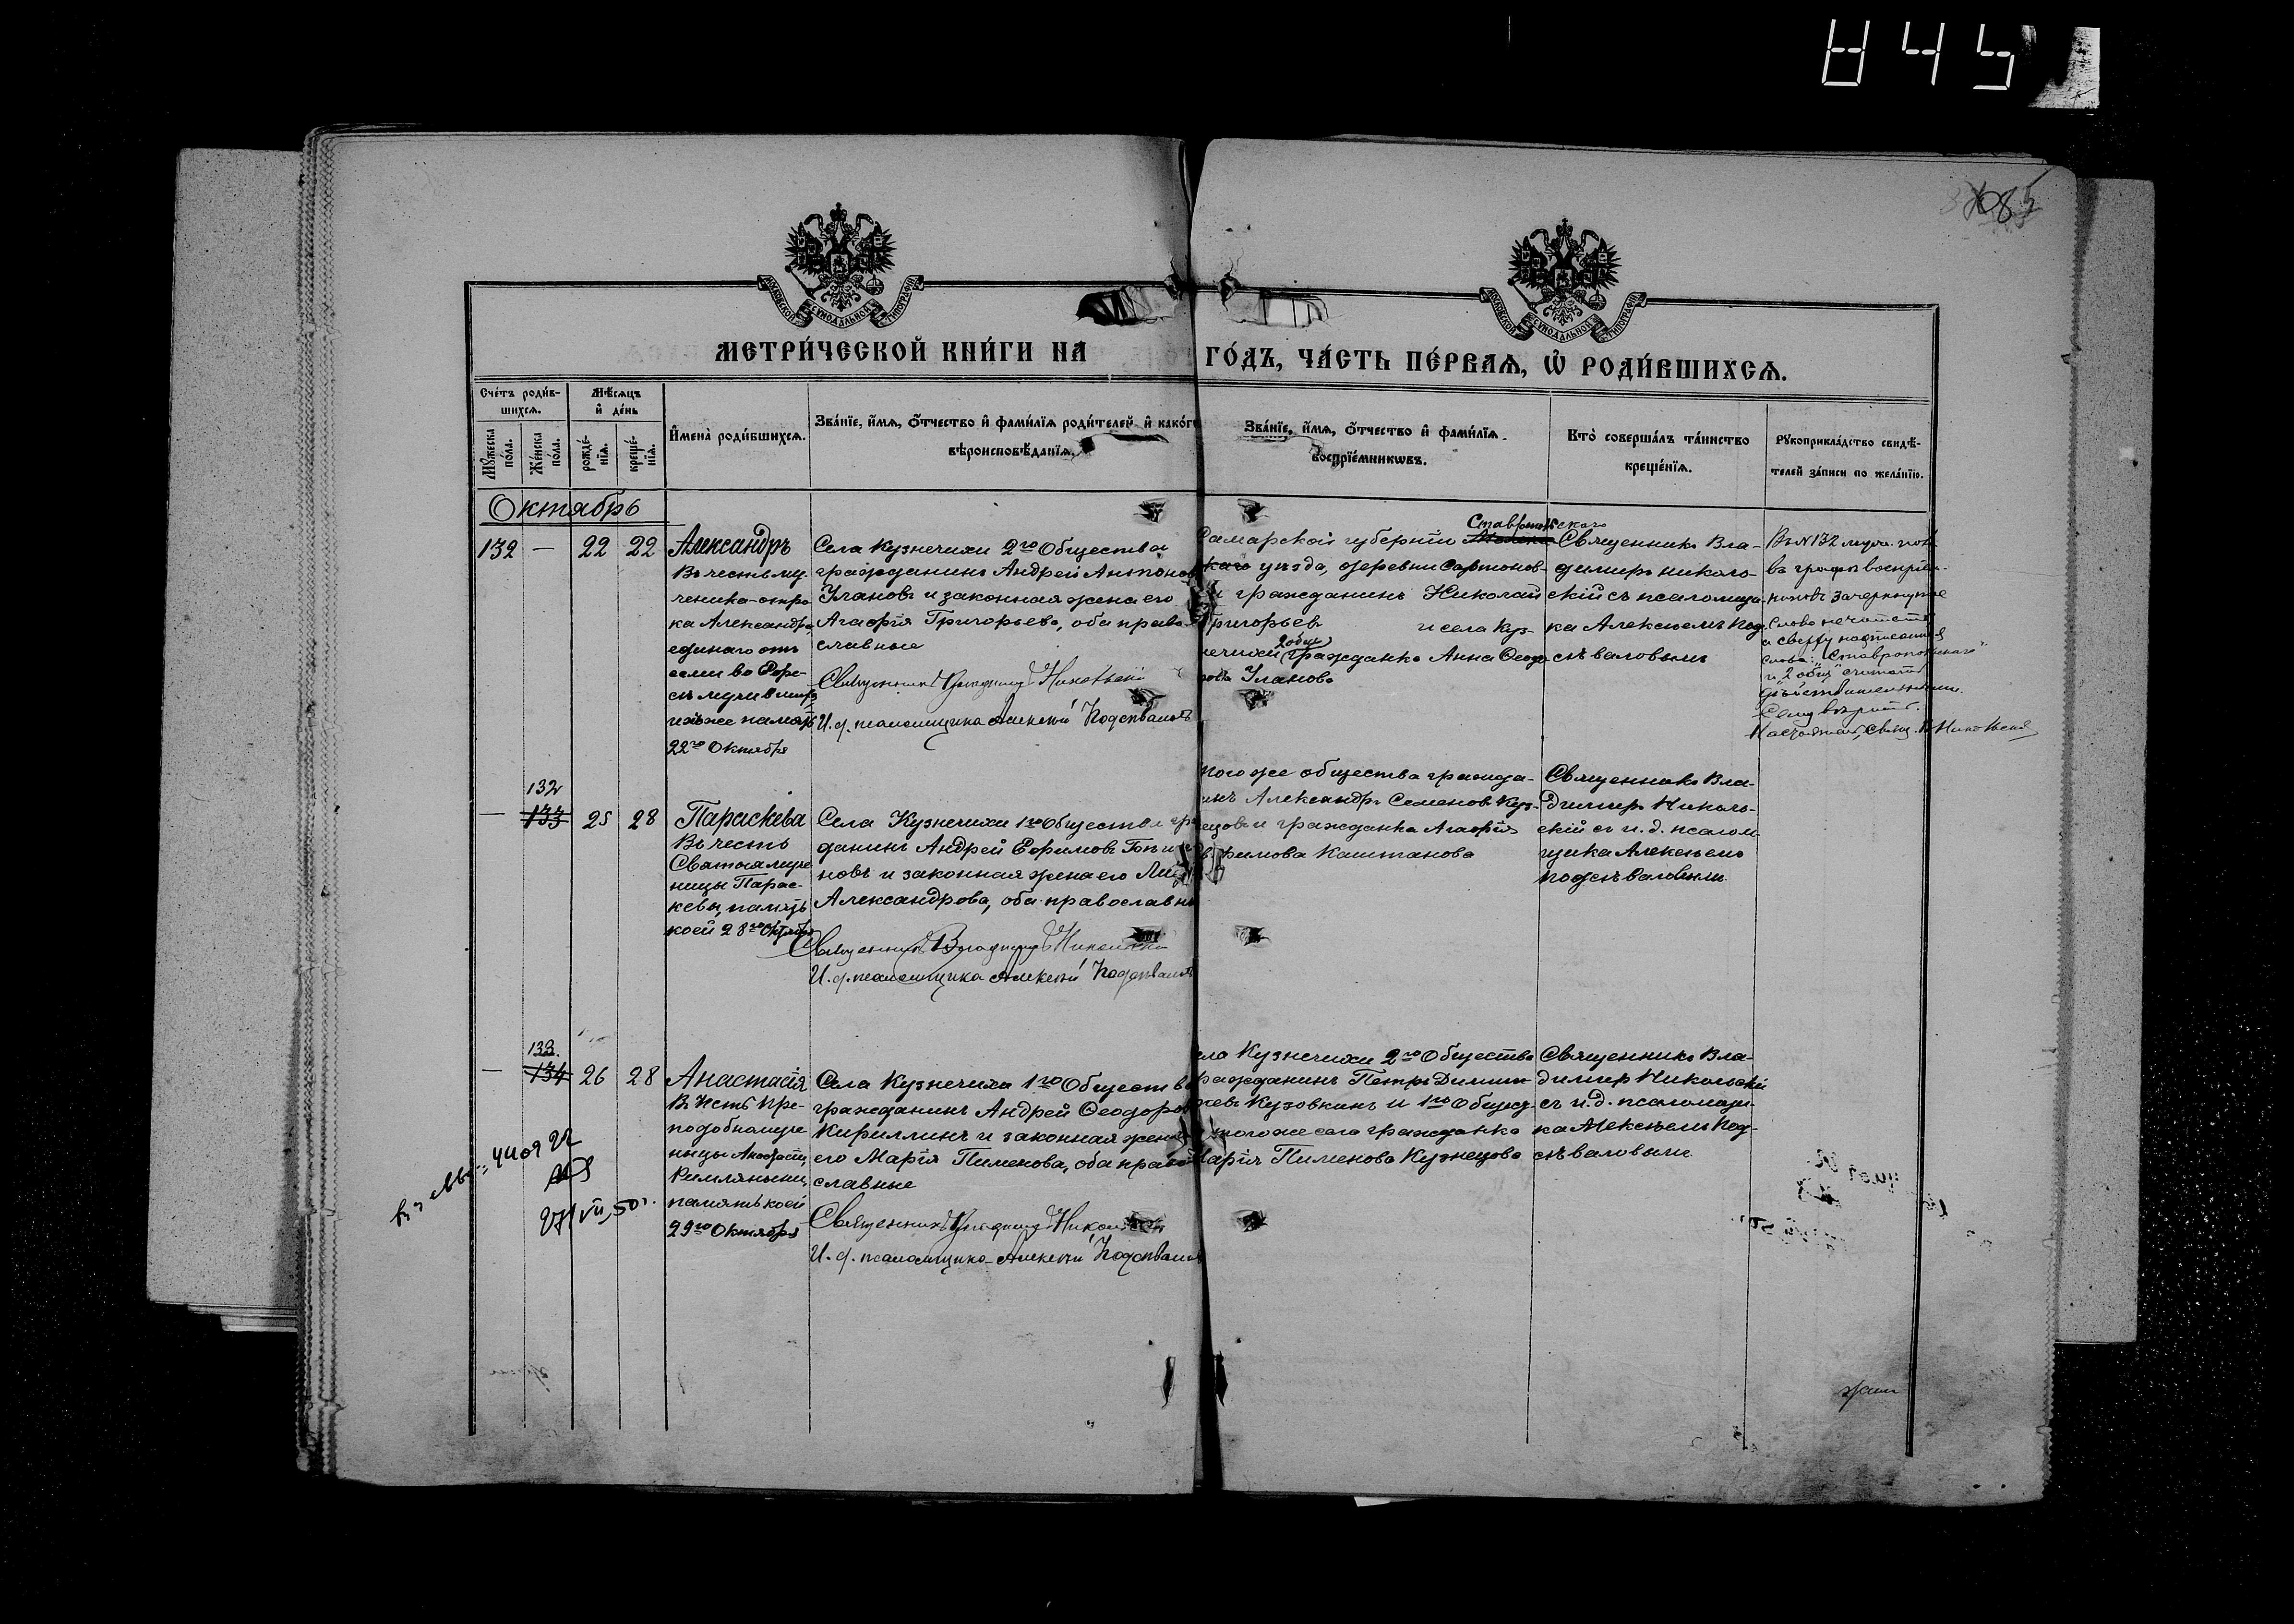 845
МОСКОВСКОЙ СѴНОДАЛЬНОЙ ТИПОГРАФІИ
МОСКОВСКОЙ СѴНОДАЛЬНОЙ ТИПОГРАФІИ
МЕТРИ́ЧЕСКОЙ КНИ́ГИ НА ГО́ДЪ, ЧА́СТЬ ПЕ́РВАѦ, Ѡ҆ РОДИ́ВШИХСѦ.
Сче́тъ роди́в-
шихсѧ.
Мꙋ́жеска по́ла.
Же́нска по́ла.
Мѣ́сѧцъ
и҆ де́нь
рожде́-
нїѧ.
креще́-
нїѧ.
И҆мена̀ роди́вшихсѧ.
Зва́нїе, и҆́мѧ, ѻ҆́тчество и҆ фами́лїѧ роди́телей и҆ како́г
вѣроисповѣ́данїѧ.
Зва́нїе, и҆́мѧ, ѻ҆́тчество и҆ фами́лїѧ
воспрїе́мникѡвъ.
Кто̀ соверша́лъ та́инство
креще́нїѧ.
Рꙋкоприкла́дство свидѣ́-
телей за́писи по жела́нїю.
Октябрь
132 — 22 22
Александръ
Въ честь му-
ченика-отро
ка Александра,
единаго отъ
седми во Ефе-
сѣ мучивших
ихъ же память
22го Октября
Села Кузнечихи 2го Общества
гражданинъ Андрей Антонов
Улановъ и законная жена его
Агафія Григорьева, оба право-
славные
Священникъ Владимиръ Никольскій
И. д. псаломщика Алексѣй Подсѣваловъ
Ставропольскаго
Самарской губерніи
каго уѣзда, деревни
гражданинъ Николай
Григорьев и села Куз-
2 общ.
нечихи гражданка Анна Ѳеодо
рова Уланова
Священникъ Вла-
димиръ николь-
скій съ псаломщи-
ка Алексѣемъ Под
сѣваловымъ
Въ № 132 муж. пола
въ графѣ воспріем-
никовъ зачеркнутое
слово не читать
а сверху надписанныя
слова: „Ставропольскаго"
и „2 общ" считать
дѣйствительными.
Священ. В. Никольскій
132
— 133 25 28
Параскева
Въ честь
Святыя муче
ницы Парас-
кевы, память
коей 28го Октября
Села Кузнечихи 1го Общества гра
данинъ Андрей Ефимовъ
новъ и законная жена его
Александрова, оба православн
Священникъ Владимиръ Никольскій
И. д. псаломщика Алексѣй Подсѣваловъ
того же общества гражда-
инъ Александръ Семеновъ Куз-
нецовъ и гражданка Агафія
Ефимова Каштанова
Священникъ Вла-
димиръ Николь-
скій съ и. д. псалом
щика Алексѣемъ
подсѣваловымъ
133.
— 134 26 28
Анастасія
Въ честь пре-
подобномуче
ницы Анастасіи
Римляныни,
память коей
29го Октября
Села Кузнечихи 1го Обществ
гражданинъ Андрей Ѳеодоров
Кириллинъ и законная жена
его Марія Пименова, оба право
славные
Священникъ Владимиръ Никольскій
И. д. псаломщика Алексѣй Подсѣваловъ
ела Кузнечихи 2го Общества
гражданинъ Петръ Димит-
ріевъ Кузовкинъ и 1го Общес-
того же села гражданка
Марія Пименова Кузнецова
Священникъ Вла-
димир Никольскій
съ и. д. псаломщи-
ка Алексѣемъ Под-
сѣваловымъ
27/VII 50 г.